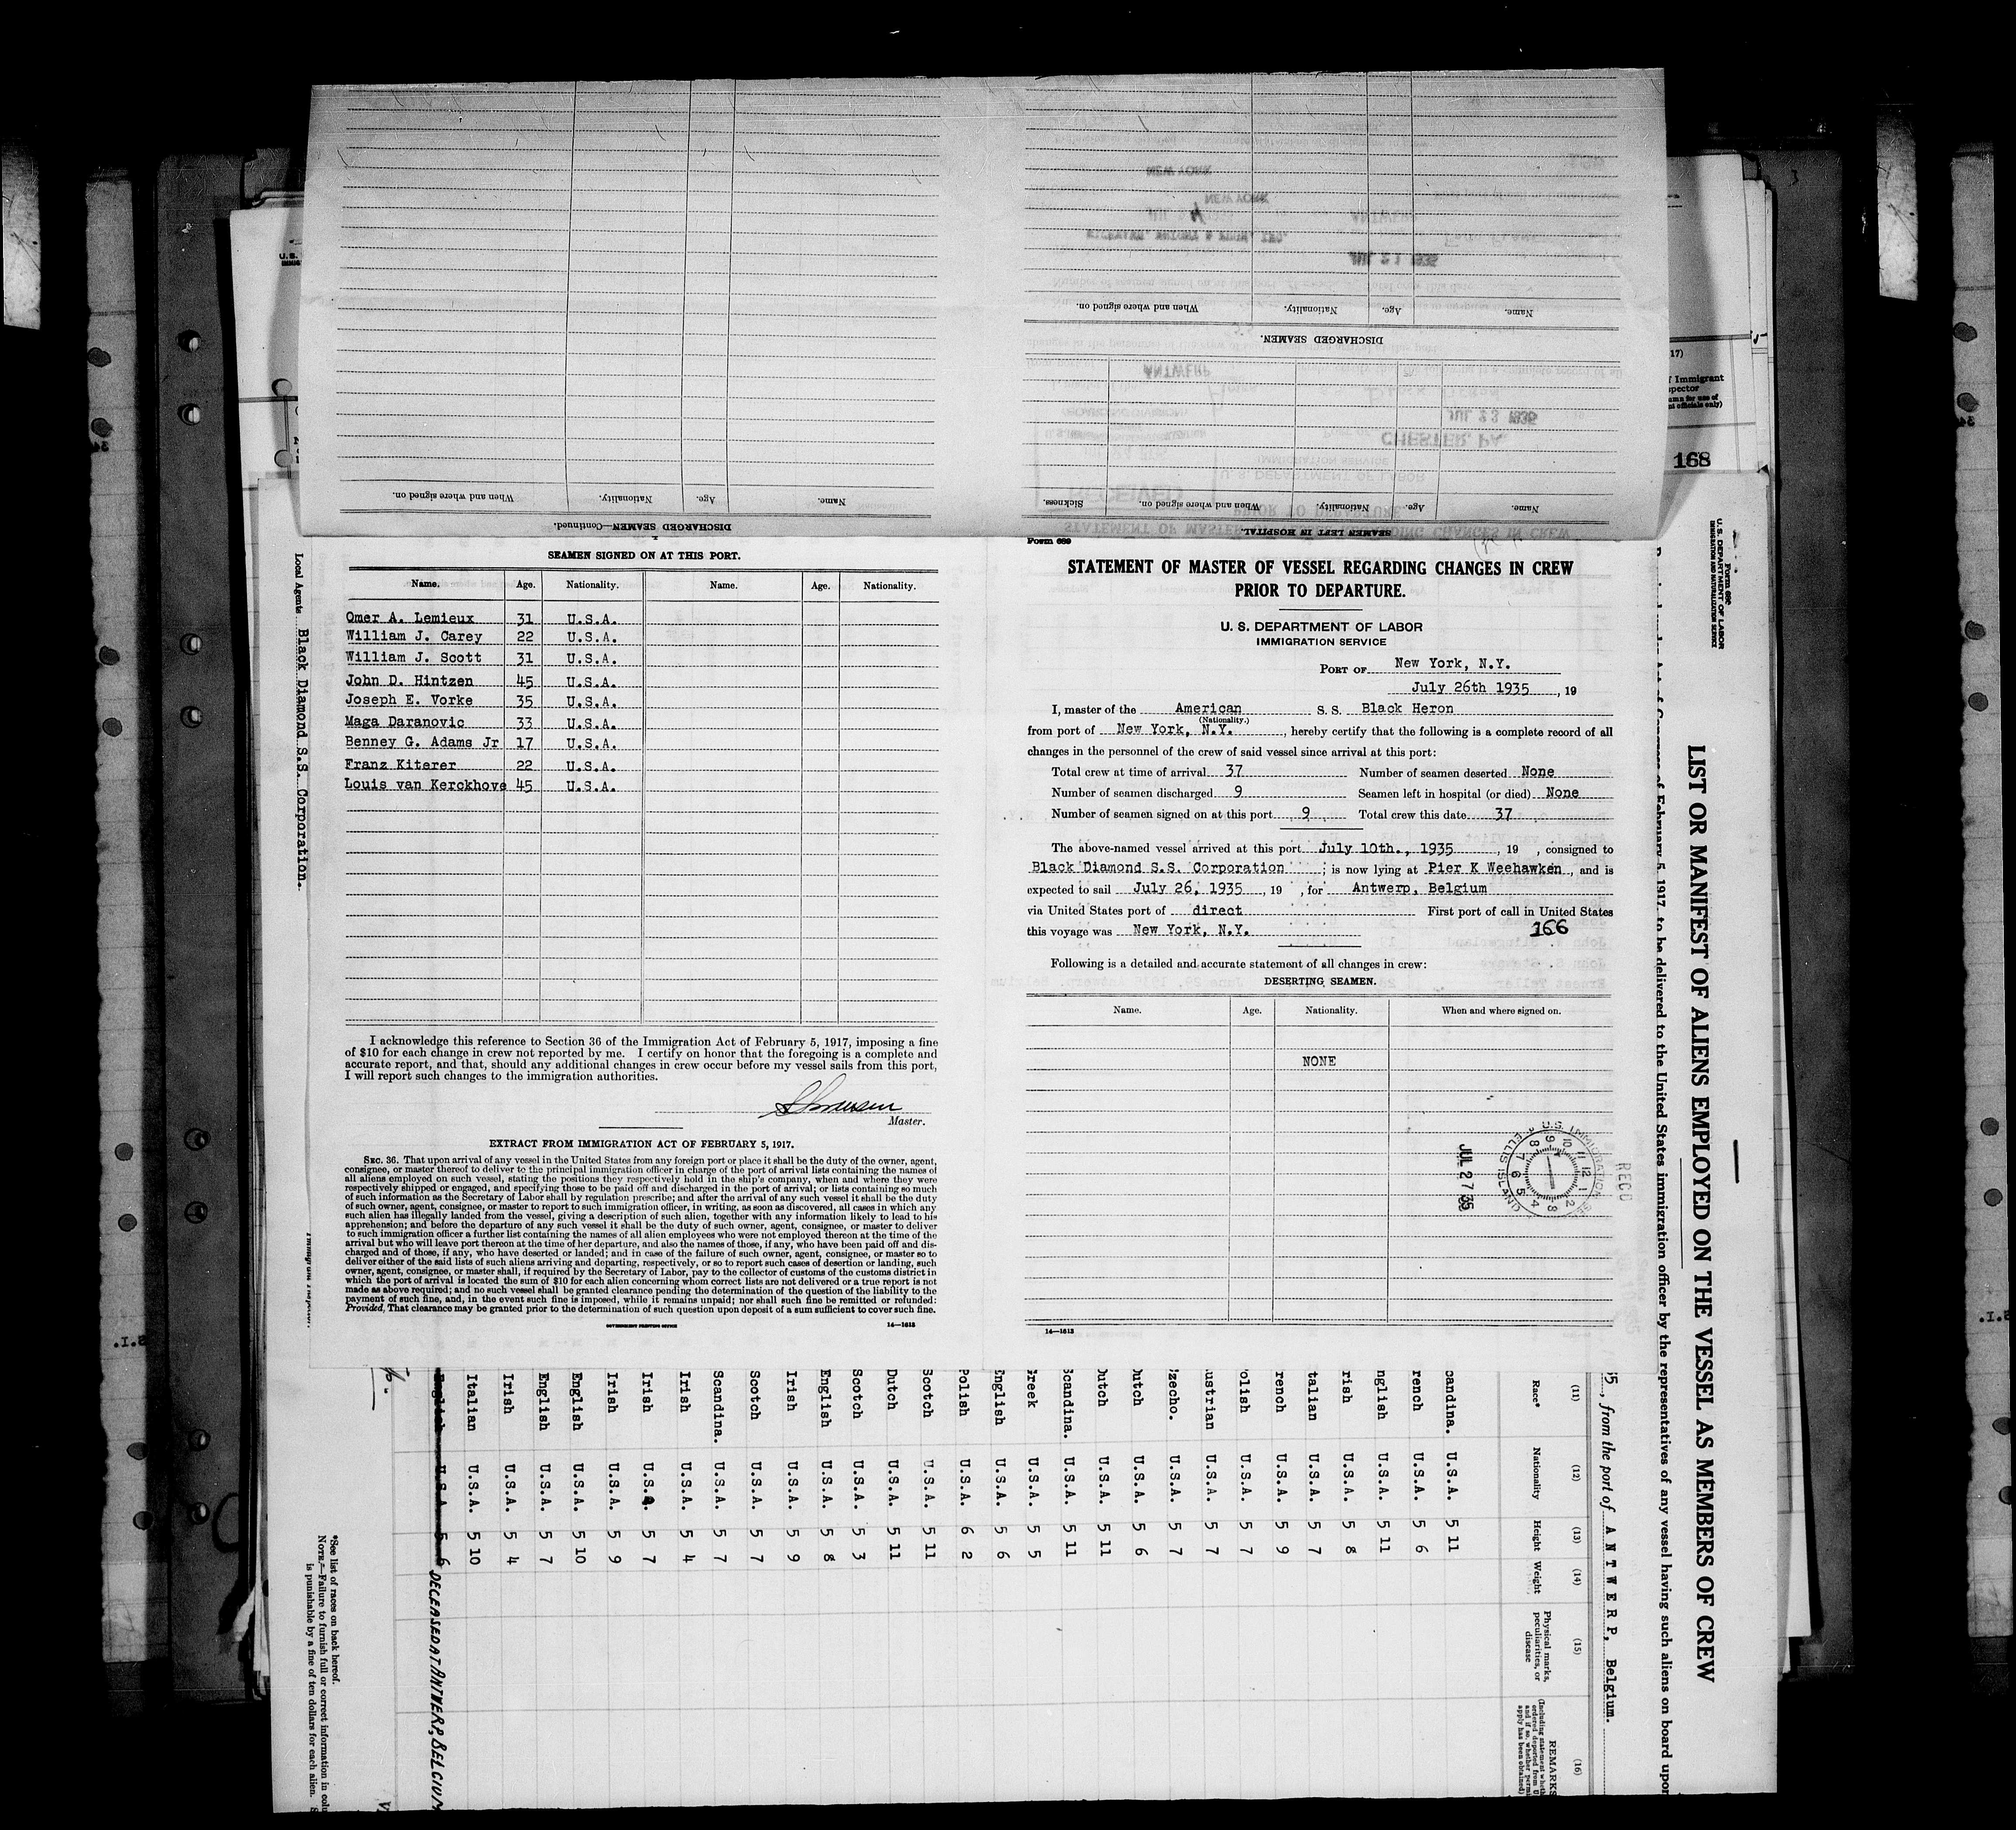 SEAMEN SIGNED ON AT THIS PORT.
Name. Age. Nationality. Name. Age. Nationality.
Omer A. Lemieux 31 U.S.A.
William J. Carey 22 U.S.A.
William J. Scott 31 U.S.A.
John D. Hintzen 45 U.S.A.
Joseph E. Vorke 35 U.S.A.
Maga Daranovic 33 U.S.A.
Benney G. Adams Jr 17 U.S.A.
Franz Kiterer 22 U.S.A.
Louis van Kerckhove 45 U.S.A.
I acknowledge this reference to Section 36 of the Immigration Act of February 5, 1917, imposing a fine
of $10 for each change in crew not reported by me. I certify on honor that the foregoing is a complete and
accurate report, and that, should any additional changes in crew occur before my vessel sails from this port,
I will report such changes to the immigration authorities.
Master.
EXTRACT FROM IMMIGRATION ACT OF FEBRUARY 5, 1917.
SEC. 36. That upon arrival of any vessel in the United States from any foreign port or place it shall be the duty of the owner, agent,
consignee, or master thereof to deliver to the principal immigration officer in charge of the port of arrival lists containing the names of
all aliens employed on such vessel, stating the positions they respectively hold in the ship's company, when and where they were
respectively shipped or engaged, and specifying those to be paid off and discharged in the port of arrival; or lists containing so much
of such information as the Secretary of Labor shall by regulation prescribe; and after the arrival of any such vessel it shall be the duty
of such owner, agent, consignee, or master to report to such immigration officer, in writing, as soon as discovered, all cases in which any
such alien has illegally landed from the vessel, giving a description of such alien, together with any information likely to lead to his
apprehension; and before the departure of any such vessel it shall be the duty of such owner, agent, consignee, or master to deliver
to such immigration officer a further list containing the names of all alien employees who were not employed thereon at the time of the
arrival but who will leave port thereon at the time of her departure, and also the names of those, if any, who have been paid off and dis-
charged and of those, if any, who have deserted or landed; and in case of the failure of such owner, agent, consignee, or master so to
deliver either of the said lists of such aliens arriving and departing, respectively, or so to report such cases of desertion or landing, such
owner, agent, consignee, or master shall, if required by the Secretary of Labor, pay to the collector of customs of the customs district in
which the port of arrival is located the sum of $10 for each alien concerning whom correct lists are not delivered or a true report is not
made as above required; and no such vessel shall be granted clearance pending the determination of the question of the liability to the
payment of such fine, and, in the event such fine is imposed, while it remains unpaid; nor shall such fine be remitted or refunded:
Provided, That clearance may be granted prior to the determination of such question upon deposit of a sum sufficient to cover such fine.
GOVERNMENT PRINTING OFFICE 14—1613
Form 689
STATEMENT OF MASTER OF VESSEL REGARDING CHANGES IN CREW
PRIOR TO DEPARTURE.
U. S. DEPARTMENT OF LABOR
IMMIGRATION SERVICE
PORT OF New York, N.Y.
July 26th 1935, 19
I, master of the American S. S. Black Heron
(Nationality.)
from port of New York, N.Y., hereby certify that the following is a complete record of all
changes in the personnel of the crew of said vessel since arrival at this port:
Total crew at time of arrival 37 Number of seamen deserted None
Number of seamen discharged 9 Seamen left in hospital (or died) None
Number of seamen signed on at this port 9 Total crew this date 37
The above-named vessel arrived at this port July 10th., 1935, 19 , consigned to
Black Diamond S.S. Corporation; is now lying at Pier K Weehawken, and is
expected to sail July 26, 1935, 19 , for Antwerp, Belgium
via United States port of direct First port of call in United States
this voyage was New York, N.Y. 166
Following is a detailed and accurate statement of all changes in crew:
DESERTING SEAMEN.
Name. Age. Nationality. When and where signed on.
NONE
JUL 27 35
U.S. IMMIGRATION
ELLIS ISLAND
RECD
14—1613
DISCHARGED SEAMEN—Continued.
Name. Age. Nationality. When and where signed on.
SEAMEN LEFT IN HOSPITAL.
Name. Age. Nationality. When and where signed on. Sickness.
DISCHARGED SEAMEN.
Name. Age. Nationality. When and where signed on.
168
Local Agents Black Diamond S.S. Corporation.
U. S. DEPARTMENT OF LABOR
LIST OR MANIFEST OF ALIENS EMPLOYED ON THE VESSEL AS MEMBERS OF CREW
February 5, 1917, to be delivered to the United States immigration officer by the representatives of any vessel having such aliens on board upon
from the port of ANTWERP, Belgium.
(11) (12) (13) (14) (15) (16)
Race* Nationality Height Weight Physical marks, peculiarities, or disease REMARKS
candina. U.S.A. 5 11
rench U.S.A. 5 6
nglish U.S.A. 5 11
rish U.S.A. 5 8
talian U.S.A. 5 7
rench U.S.A. 5 9
olish U.S.A. 5 7
ustrian U.S.A. 5 7
zecho. U.S.A. 5 7
utch U.S.A. 5 6
utch U.S.A. 5 11
Scandina. U.S.A. 5 11
Greek U.S.A. 5 5
English U.S.A. 5 6
Polish U.S.A. 6 2
Scotch U.S.A. 5 11
Dutch U.S.A. 5 11
Scotch U.S.A. 5 3
English U.S.A. 5 8
Irish U.S.A. 5 9
Scotch U.S.A. 5 7
Scandina. U.S.A. 5 7
Irish U.S.A. 5 4
Irish U.S.A. 5 7
Irish U.S.A. 5 9
English U.S.A. 5 10
English U.S.A. 5 7
Irish U.S.A. 5 4
Italian U.S.A. 5 10
English U.S.A. 5 6 DECEASED AT ANTWERP, BELGIUM
*See list of races on back hereof.
NOTE.—Failure to furnish full or correct information in colu
is punishable by a fine of ten dollars for each alien.